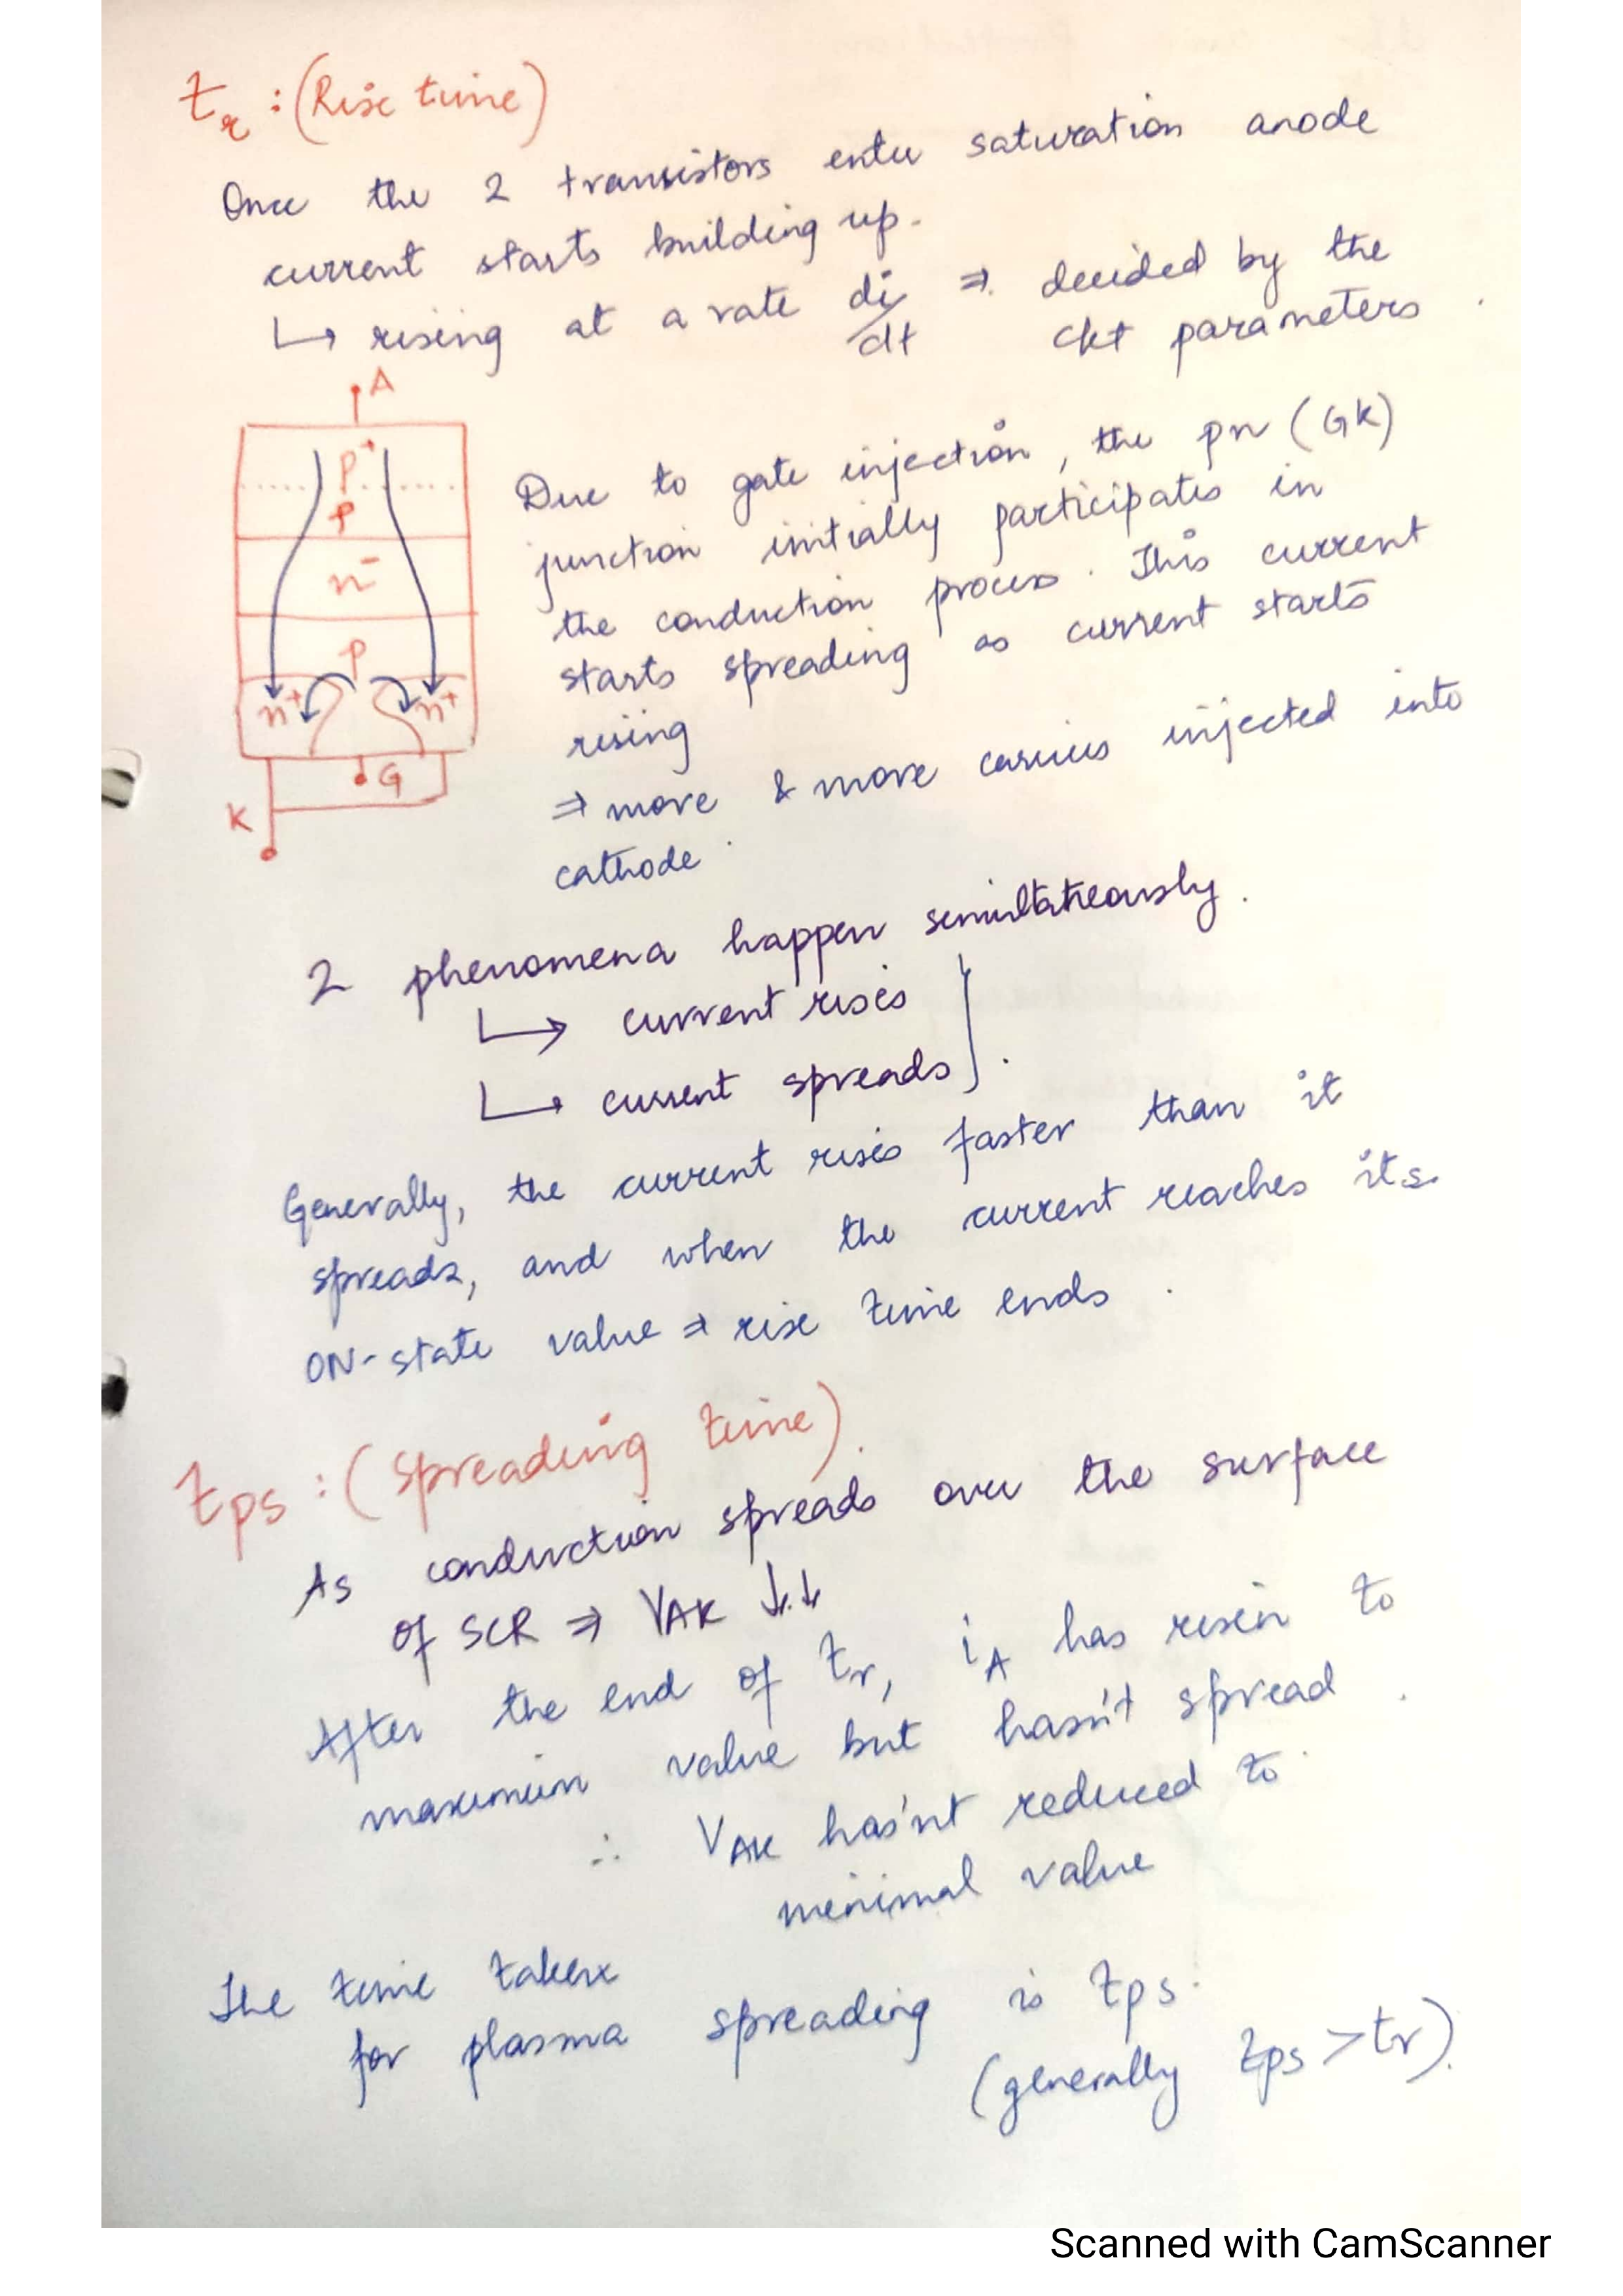 tr : (Rise time)
Once the 2 transistors enter saturation anode
current starts building up.
↳ rising at a rate di/dt ⇒ decided by the
ckt parameters
A
p+
p
n-
p
n+ n+
G
K
Due to gate injection, the pn (GK)
junction initially participates in
the conduction process. This current
starts spreading as current starts
rising
⇒ more & more carriers injected into
cathode.
2 phenomena happen simultaneously.
↳ current rises
↳ current spreads
Generally, the current rises faster than it
spreads, and when the current reaches its
ON-state value ⇒ rise time ends.
tps : (Spreading time).
As conduction spreads over the surface
of SCR ⇒ VAK ↓↓
After the end of tr, iA has risen to
maximum value but hasn't spread.
∴ VAK has'nt reduced to
minimal value
The time taken
for plasma spreading is tps.
(generally tps > tr).
Scanned with CamScanner